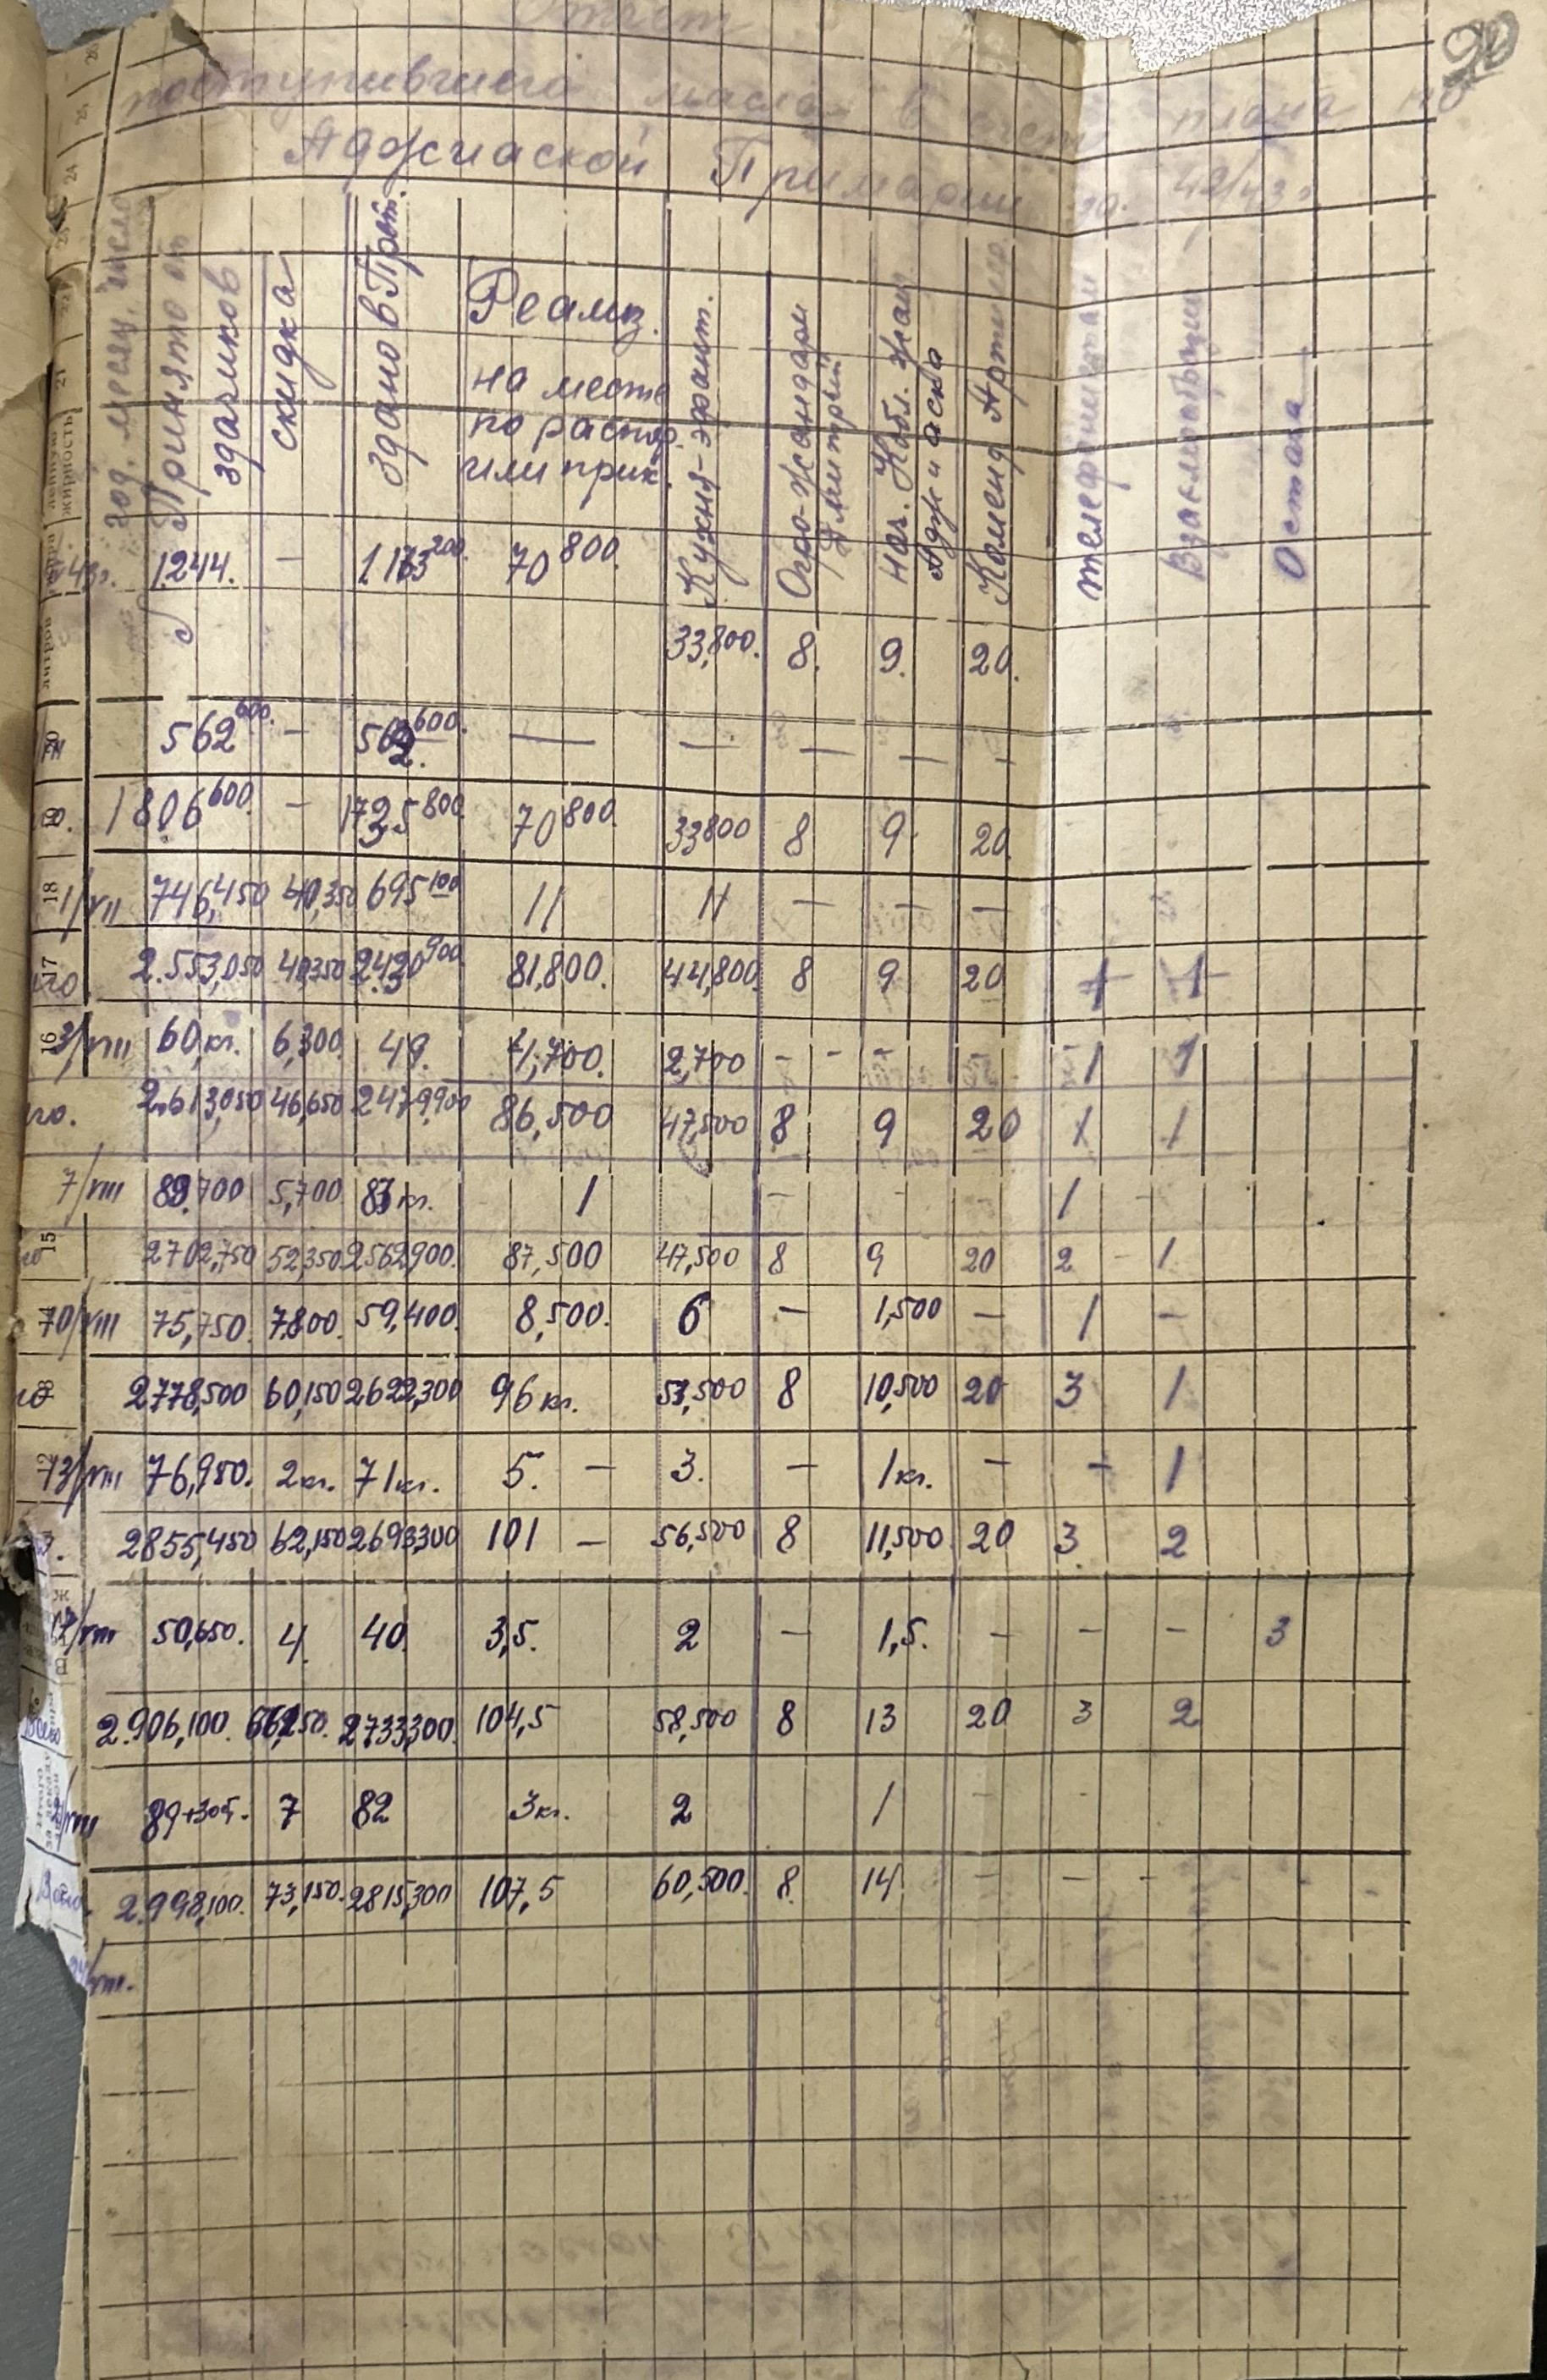 20
Отчет
поступившего масла в счет плана по
Аджиаской Примарии за 42/43 г.
год, месяц, число
Принято от здатчиков
скидка
Здано в Прет.
Реализ.
на месте
по распор.
или прик.
Кухня-эфант.
Агро-жандарм Дмитрий
Нач. Кобл. жан Аджиаска
Коменд Арти
телефонистам
Взаимообразн
Остаток
43г. 1244. — 1173 200. 70 800.
33,800. 8. 9. 20.
562 600. — 562 600. — — — — —
1806 600. — 1735 800. 70 800. 33800 8 9. 20.
1/VII 746,450 40,350 695 100 11 11 — — —
го 2.553,050 40350 2430 900 81,800. 44,800. 8 9 20 1 1
3/VIII 60,кг. 6,300. 49. 4,700. 2,700 - - - 1 1
го. 2.613,050 46,650 2479,900 86,500 47,500 8 9 20 1 1
7/VIII 89,700 5,700 83кг. 1 - - - 1 -
го 2702,750 52,350 2562,900. 87,500 47,500 8 9 20 2 - 1
10/VIII 75,750. 7,800. 59,400. 8,500. 6 — 1,500 — 1 —
го 2778,500 60,150 2622,300 96 кг. 53,500 8 10,500 20 3 1
13/VIII 76,950. 2кг. 71кг. 5. — 3. — 1кг. — - 1
2855,450 62,150 2693,300 101 — 56,500 8 11,500 20 3 2
17/VIII 50,650. 4. 40. 3,5. 2 — 1,5. — — — 3
Всего 2.906,100. 66,150. 2733,300. 104,5 58,500 8 13 20 3 2
/VIII 89+305. 7 82 3кг. 2 1 - -
Всего. 2.998,100. 73,150. 2815,300 107,5 60,500. 8. 14 — — - - -
/VIII.
26
25
24
23
22
21
жирность
литров
18
17
16
15